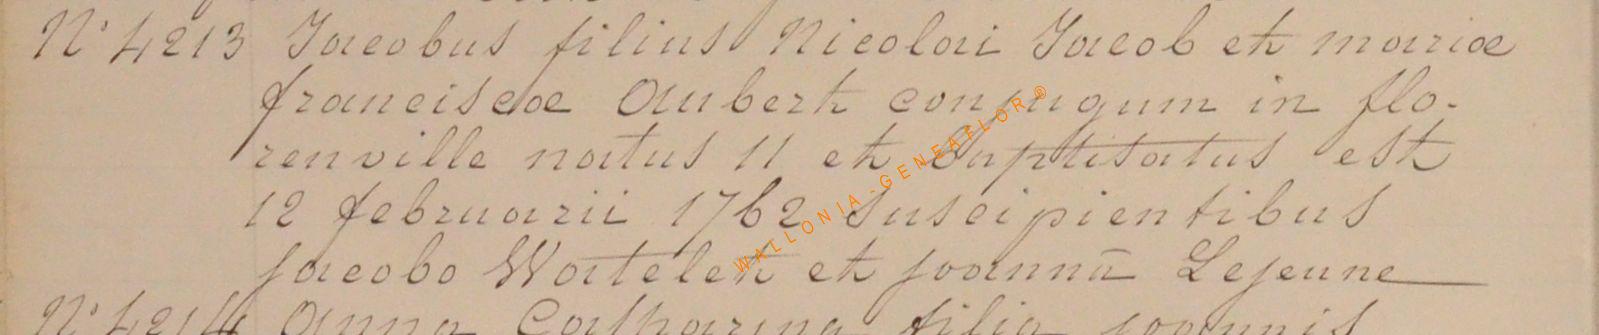 N° 4213 Jacobus filius Nicolai Jacob et mariae
franciscae Aubert conjugum in flo-
renville natus 11 et baptisatus est
12 februarii 1762 suscipientibus
jacobo Watelet et joanna Lejeune
N° 4214 Anna Catharina filia joannis
WALLONIA-GENEAFLOR®